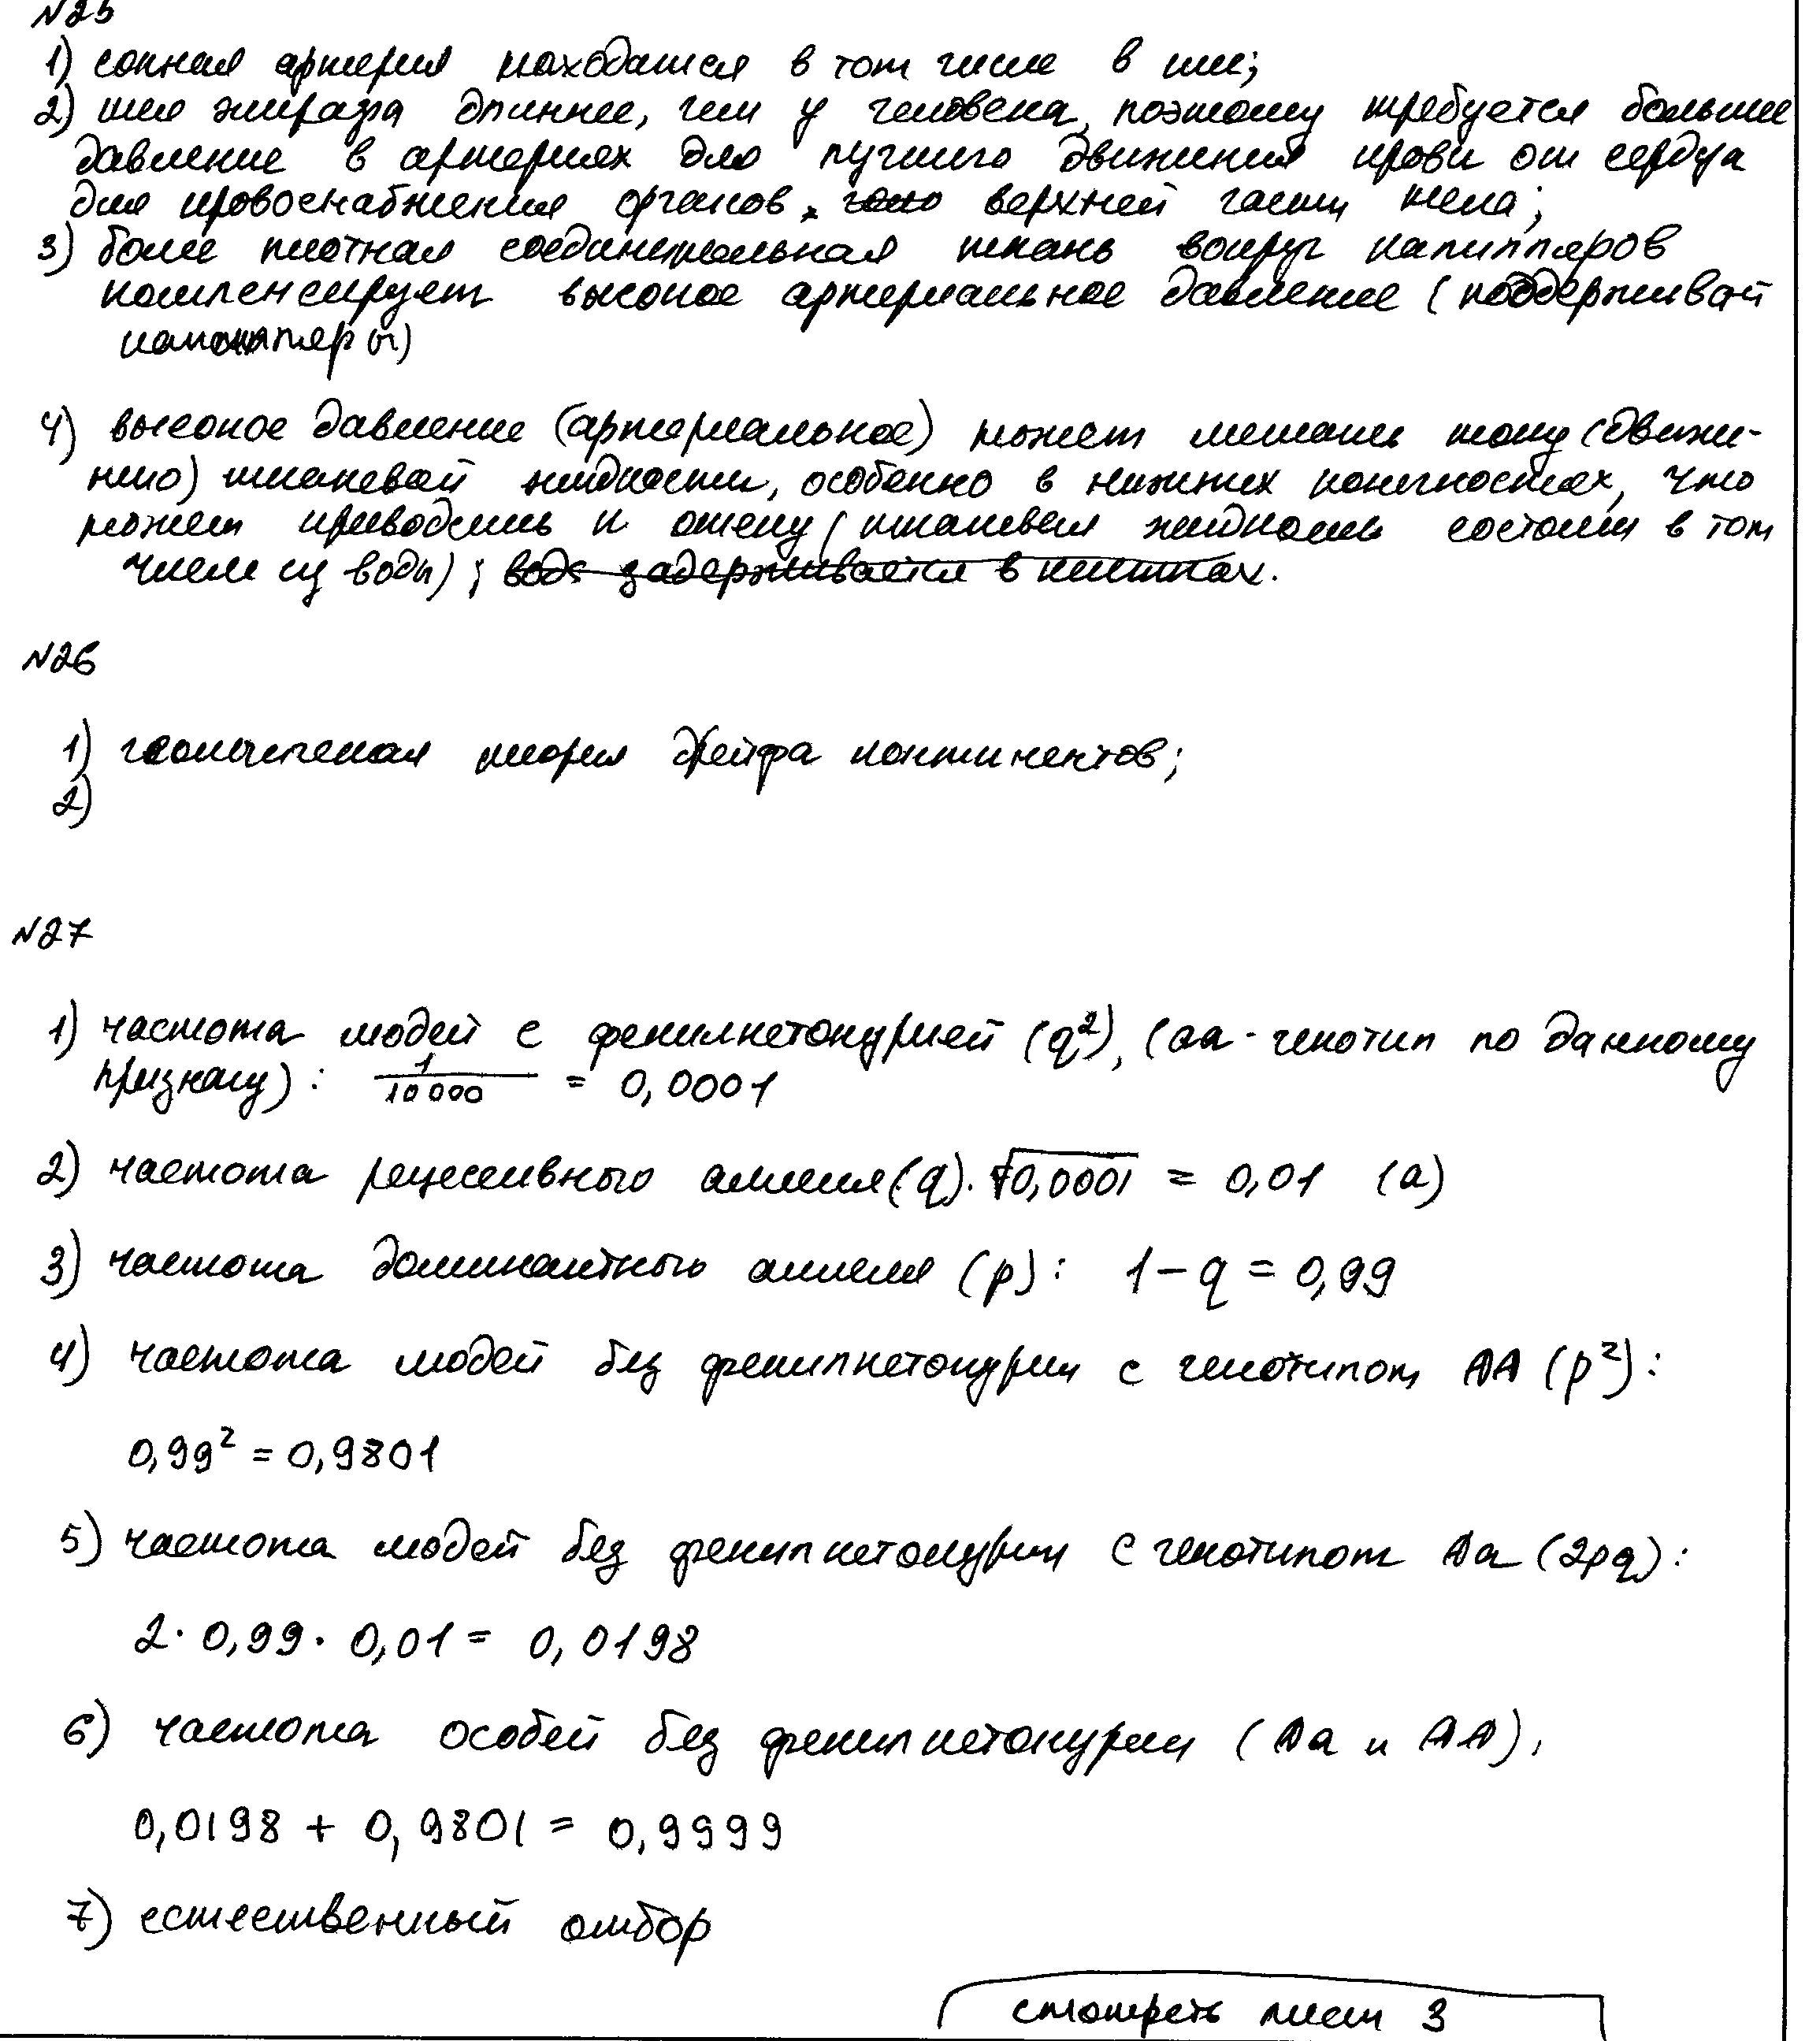 №25
1) сонная артерия находится в том числе в шее;
2) шея жирафа длиннее, чем у человека, поэтому требуется большее
давление в артериях для лучшего движения крови от сердца
для кровоснабжения органов верхней части тела;
3) более плотная соединительная ткань вокруг капилляров
компенсирует высокое артериальное давление (поддерживает
капилляры)
4) высокое давление (артериальное) может мешать току (движе-
нию) тканевой жидкости, особенно в нижних конечностях, что
может приводить к отеку (тканевая жидкость состоит в том
числе из воды); вода задерживается в клетках.
№26
1) теория дрейфа континентов;
2)
№27
1) частота людей с фенилкетонурией (q²), (аа - генотип по данному
признаку): 1/10000 = 0,0001
2) частота рецессивного аллеля (q). √0,0001 = 0,01 (а)
3) частота доминантного аллеля (p): 1 - q = 0,99
4) частота людей без фенилкетонурии с генотипом АА (p²):
0,99² = 0,9801
5) частота людей без фенилкетонурии с генотипом Аа (2pq):
2 · 0,99 · 0,01 = 0,0198
6) частота особей без фенилкетонурии (Аа и АА):
0,0198 + 0,9801 = 0,9999
7) естественный отбор
смотреть лист 3